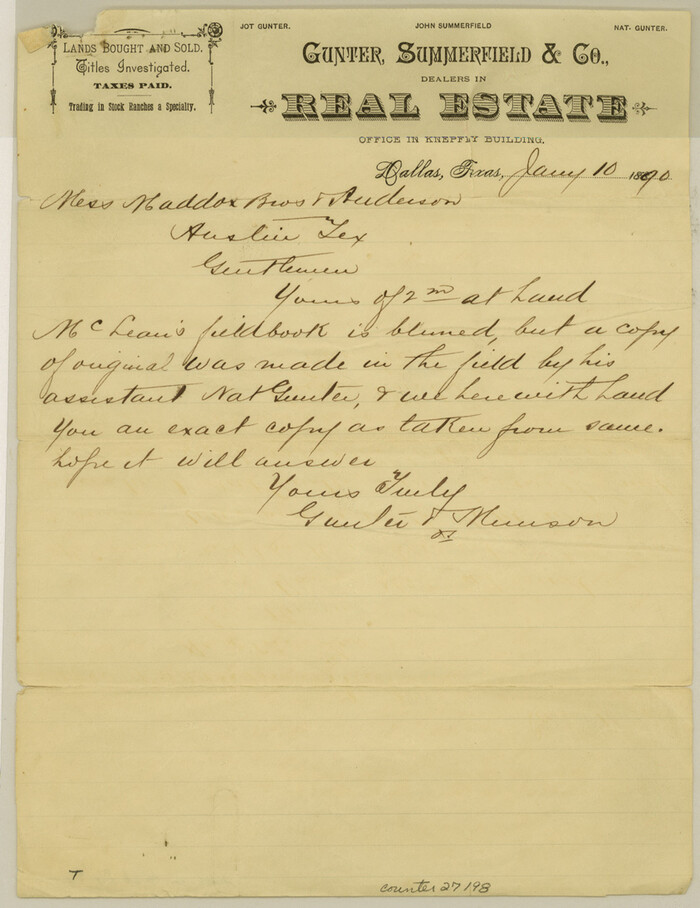 JOT GUNTER. JOHN SUMMERFIELD NAT- GUNTER.
LANDS BOUGHT AND SOLD.
Titles Investigated.
TAXES PAID.
Trading in Stock Ranches a Specialty.
GUNTER, SUMMERFIELD & CO.,
DEALERS IN
REAL ESTATE
OFFICE IN KNEPFLY BUILDING.
Dallas, Texas, Jany 10 1890
Mess Maddox Bros & Anderson
Austin Tex
Gentlemen
Yours of 2nd at hand
McLean's fieldbook is burned, but a copy
of original was made in the field by his
assistant Nat Gunter, & we herewith hand
You an exact copy as taken from same.
hope it will answer
Yours Truly
Gunter & Munson
T
counter 27198